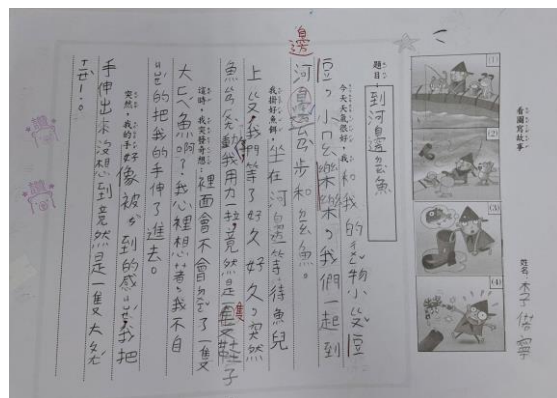 看圖寫故事
姓名：李
(1)
(2)
(3)
(4)
題目：到河邊ㄉㄧㄠ魚
今天天氣很好，我和我的ㄔㄨㄥ物小ㄆㄛ豆
豆，小ㄇㄠ樂樂，我們一起到
河邊ㄙㄢ步和ㄉㄧㄠ魚。
邊
我掛好魚餌，坐在河邊等待魚兒
上ㄍㄡ，我們等了好久好久，突然
魚ㄍㄢ發動我用力一拉，竟然是一隻鞋子
隻
這時，我突發奇想：裡面會不會ㄘㄤ了一隻
大ㄕㄚ魚啊？我心裡想著，我不自
ㄐㄩㄝ的把我的手伸了進去。
突然，我的手好像被ㄧㄠ到的感ㄐㄩㄝ，我把
手伸出來沒想到竟然是一隻大ㄆㄤ
ㄒㄧㄝ。
讚
讚